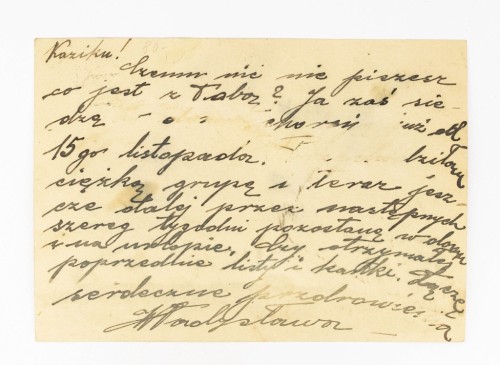 Kaziku!
Czemu nic nie piszesz
co jest z Tobą? Ja zaś sie-
dzę już od
15go listopada.
ciężką grupę i teraz jesz-
cze dalej przez następnych
szereg tygodni pozostanę w domu
Czy otrzymałeś
poprzednie listy i kartki. Łączę
serdeczne pozdrowienia
Władysława